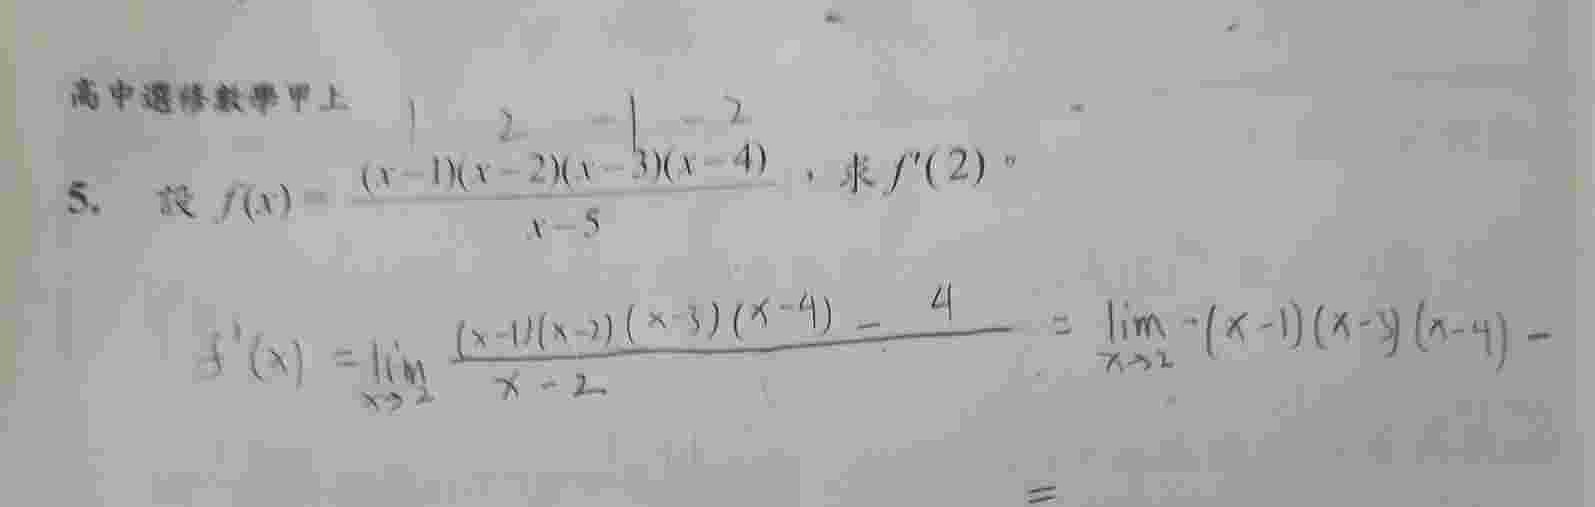 高中選修數學甲上
1 2 -1 -2
5. 設 f(x) = (x-1)(x-2)(x-3)(x-4) / x-5 , 求 f'(2)。
f'(x) = lim x→2 (x-1)(x-2)(x-3)(x-4) - 4 / x-2 = lim x→2 -(x-1)(x-3)(x-4) -
=